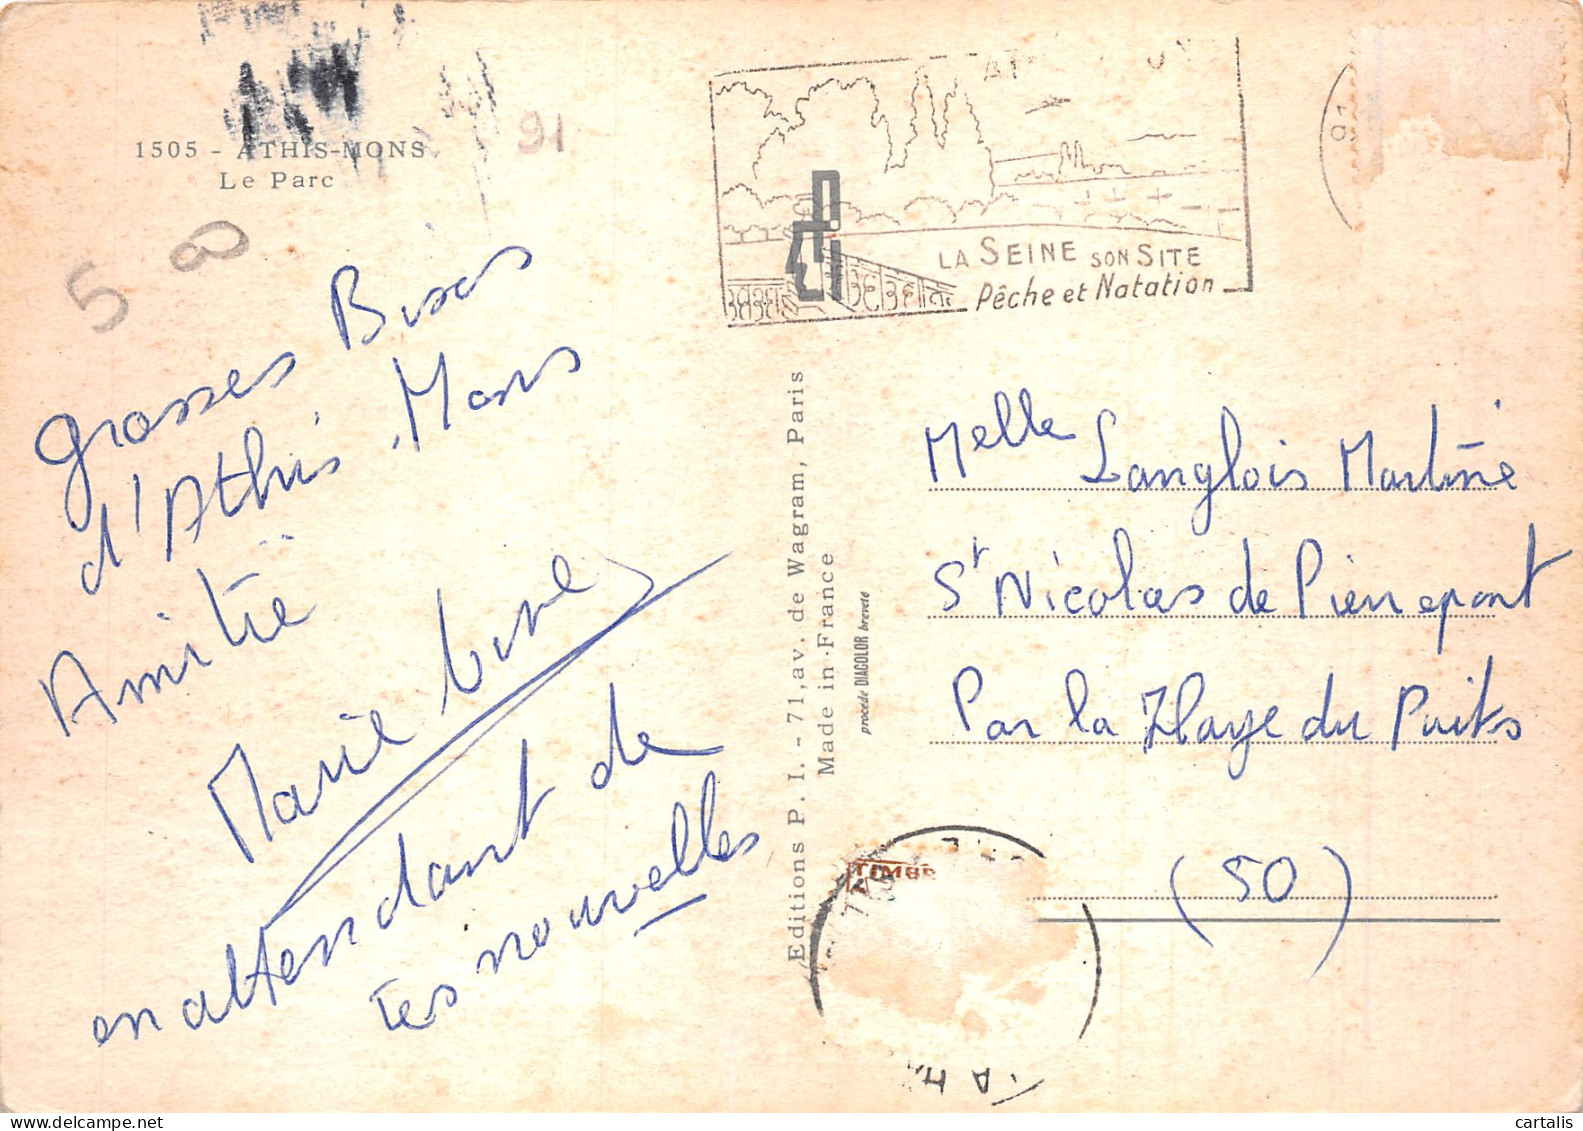 1505 - ATHIS-MONS
Le Parc
91
5 8
Grosses Bises
d'Athis-Mons
Amitié
Marie
en attendant de
tes nouvelles
LA SEINE SON SITE
Pêche et Natation
91
Editions P. I. - 71, av. de Wagram, Paris
Made in France
procédé DIACOLOR breveté
Melle Langlois Martine
St Nicolas de Pierrepont
Par la Haye du Puits
TIMBR
(50)
cartalis